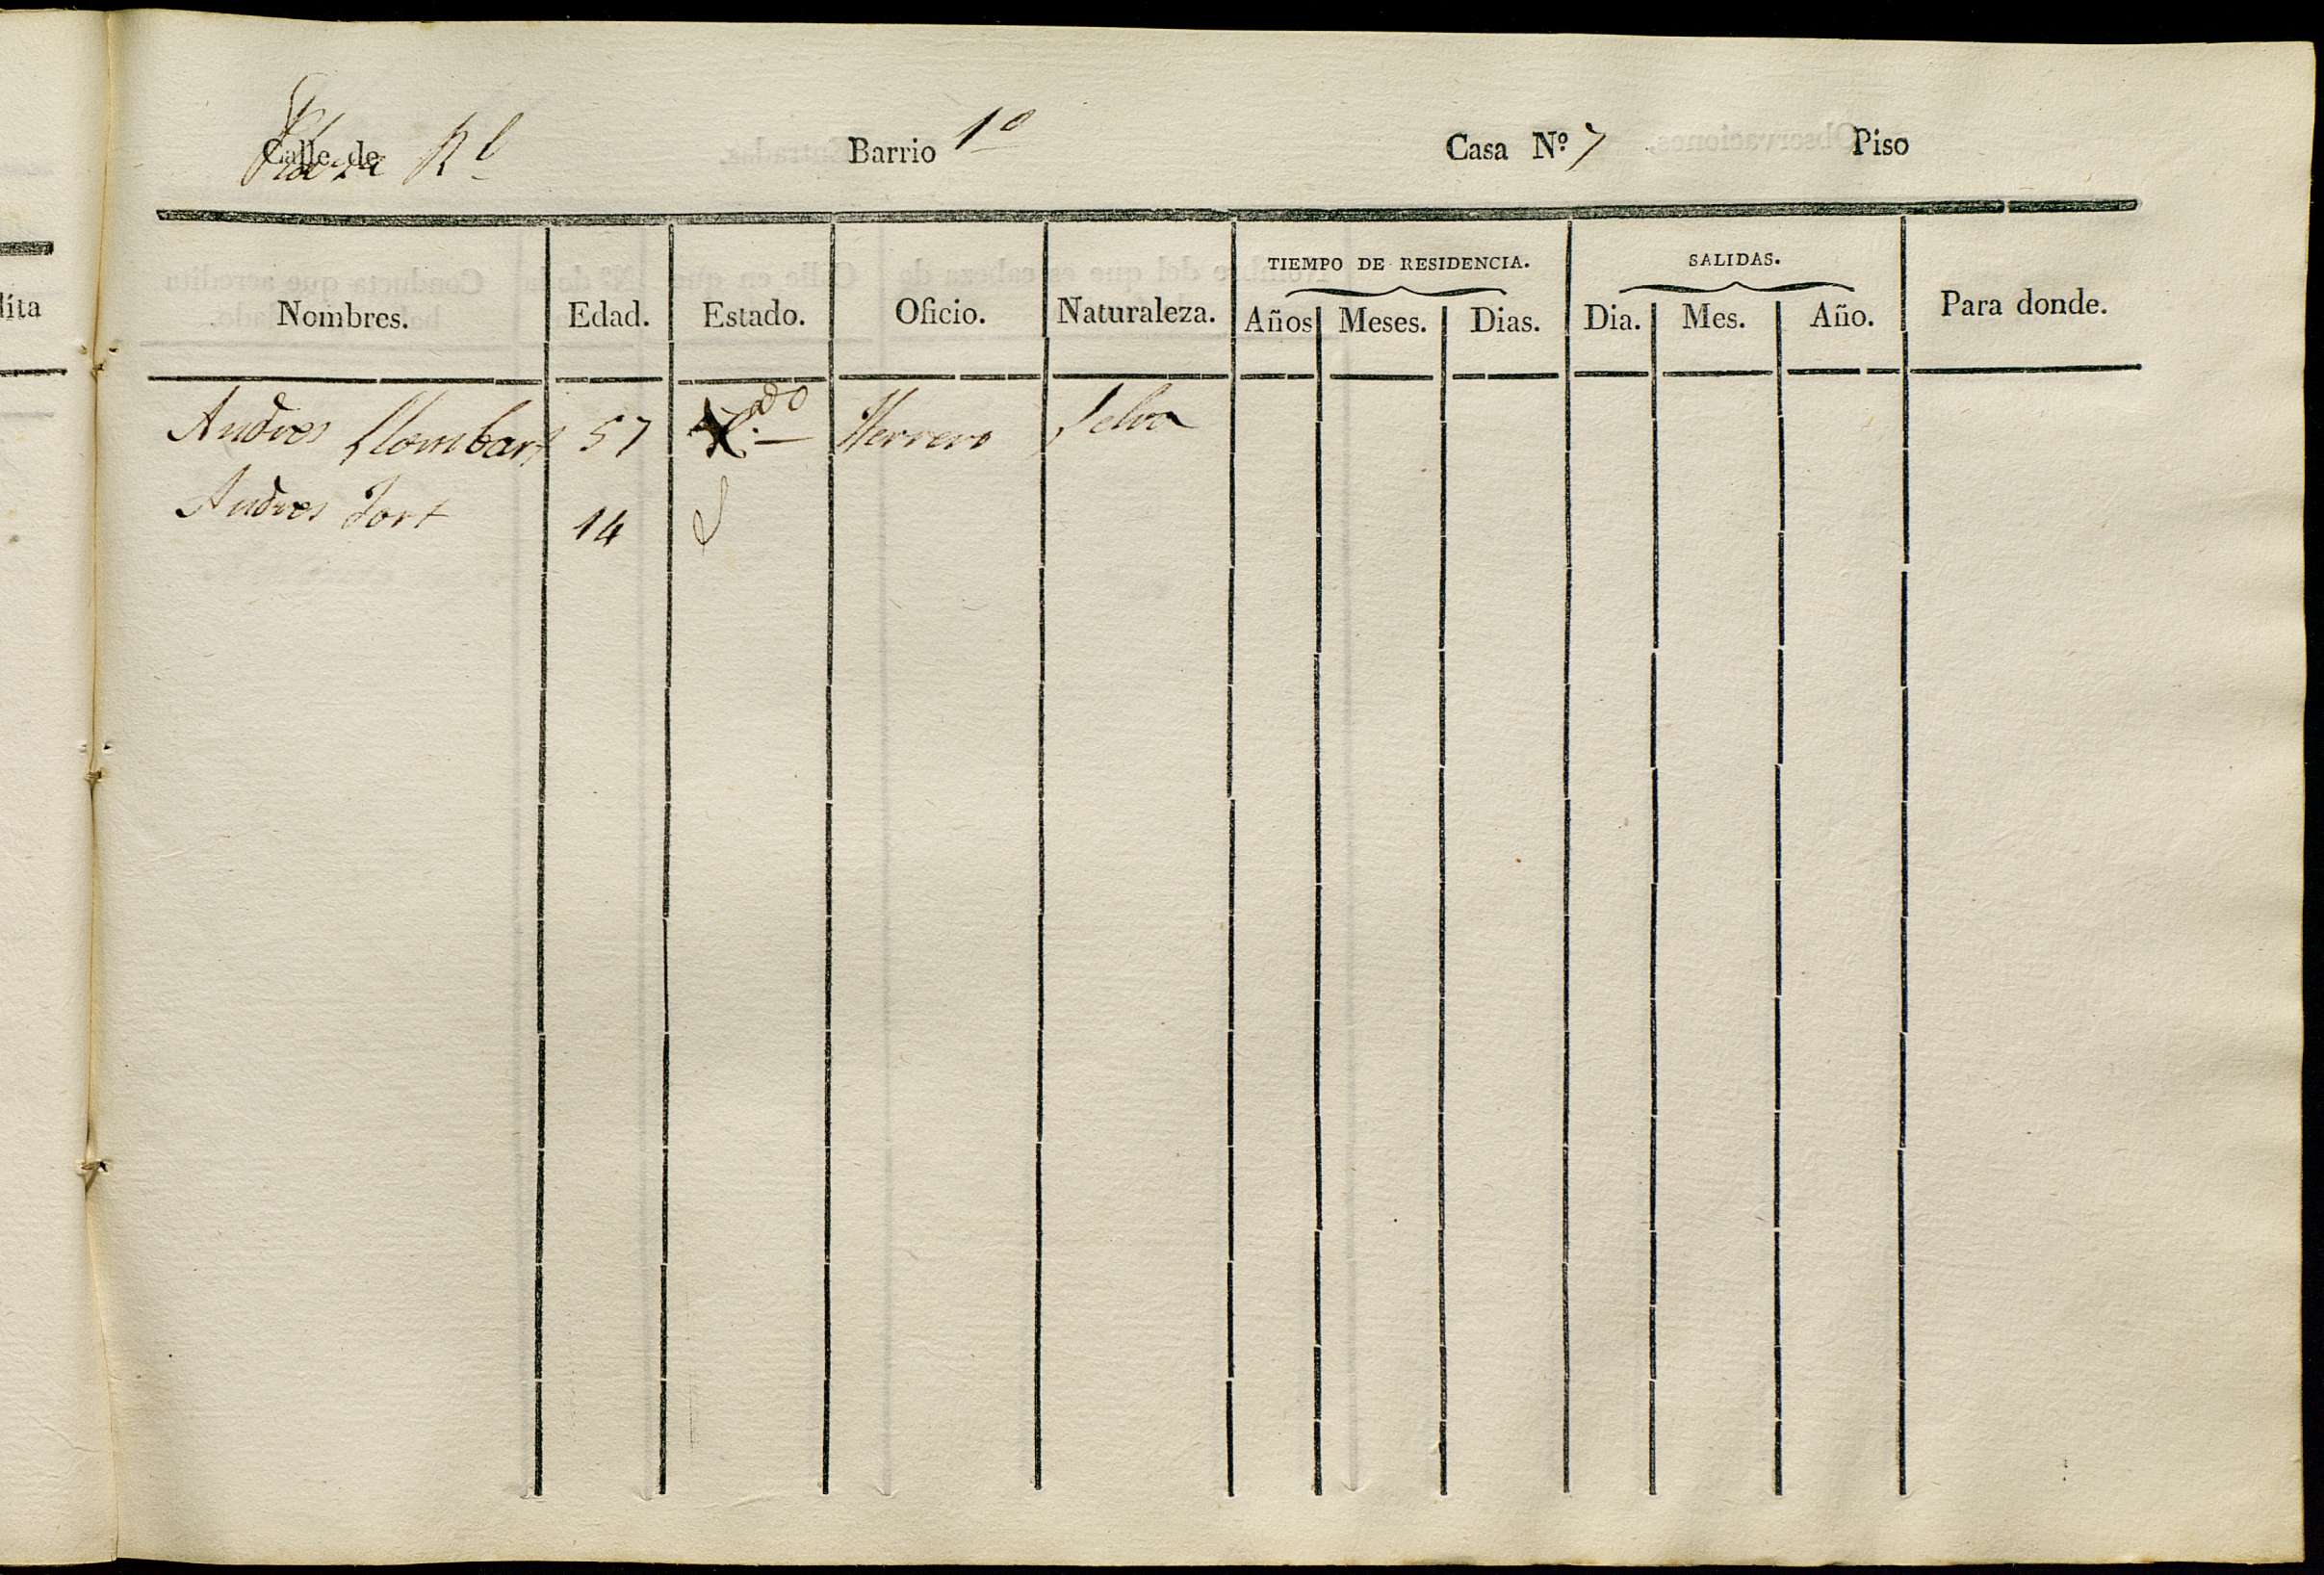 Calle de Plaza Rl Barrio 1º Casa Nº 7 Piso
TIEMPO DE RESIDENCIA. SALIDAS.
Nombres. Edad. Estado. Oficio. Naturaleza. Años Meses. Dias. Dia. Mes. Año. Para donde.
Andres Llombart 57 Herrero Selva
Andres Fort 14 S